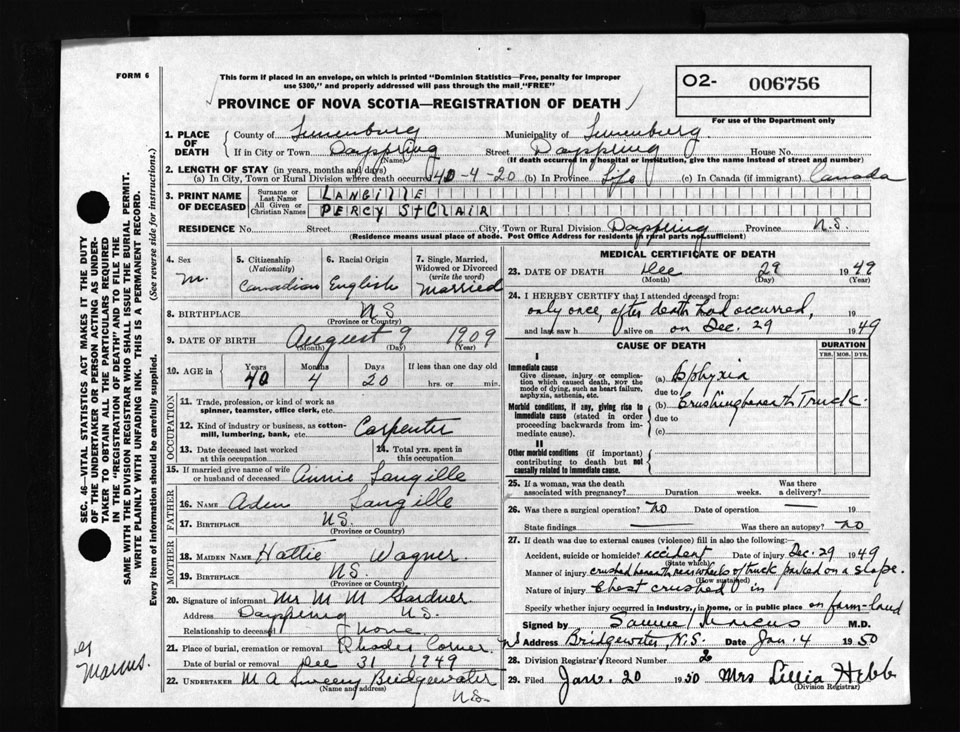 FORM 6
This form if placed in an envelope, on which is printed "Dominion Statistics—Free, penalty for improper
use $300," and properly addressed will pass through the mail "FREE"
PROVINCE OF NOVA SCOTIA—REGISTRATION OF DEATH
O2- 006756
For use of the Department only
SEC. 46—VITAL STATISTICS ACT MAKES IT THE DUTY
OF THE UNDERTAKER OR PERSON ACTING AS UNDER-
TAKER TO OBTAIN ALL THE PARTICULARS REQUIRED
IN THE "REGISTRATION OF DEATH" AND TO FILE THE
SAME WITH THE DIVISION REGISTRAR WHO SHALL ISSUE THE BURIAL PERMIT.
WRITE PLAINLY WITH UNFADING INK. THIS IS A PERMANENT RECORD.
Every item of information should be carefully supplied. (See reverse side for instructions.)
1. PLACE OF DEATH County of Lunenburg Municipality of Lunenburg
If in City or Town Dayspring Street Dayspring House No.
(Name) (If death occurred in a hospital or institution, give the name instead of street and number)
2. LENGTH OF STAY (in years, months and days)
(a) In City, Town or Rural Division where death occurred 40-4-20 (b) In Province Life (c) In Canada (if immigrant) Canada
3. PRINT NAME OF DECEASED Surname or Last Name LANGILLE
All Given or Christian Names PERCY StCLAIR
RESIDENCE No. Street City, Town or Rural Division Dayspring Province N.S.
(Residence means usual place of abode. Post Office Address for residents in rural parts not sufficient)
4. Sex M.
5. Citizenship (Nationality) Canadian
6. Racial Origin English
7. Single, Married, Widowed or Divorced (write the word) Married
8. BIRTHPLACE N S
(Province or Country)
9. DATE OF BIRTH August 9 1909
(Month) (Day) (Year)
10. AGE in Years 40 Months 4 Days 20 If less than one day old hrs. or min.
OCCUPATION
11. Trade, profession, or kind of work as
spinner, teamster, office clerk, etc.
12. Kind of industry or business, as cotton-
mill, lumbering, bank, etc. Carpenter
13. Date deceased last worked at this occupation
14. Total yrs. spent in this occupation
15. If married give name of wife
or husband of deceased Annie Langille
FATHER
16. NAME Aden Langille
17. BIRTHPLACE N.S.
(Province or Country)
MOTHER
18. MAIDEN NAME Hattie Wagner.
19. BIRTHPLACE N.S.
(Province or Country)
20. Signature of informant Mr M M Gardner
Address Dayspring N.S.
Relationship to deceased none
21. Place of burial, cremation or removal Rhodes Corner.
Date of burial or removal Dec 31 1949
22. UNDERTAKER M A Sweeny Bridgewater
(Name and address) N.S.
Marcus.
MEDICAL CERTIFICATE OF DEATH
23. DATE OF DEATH Dec 29 1949
(Month) (Day) (Year)
24. I HEREBY CERTIFY that I attended deceased from:
only once, after death had occurred, 19
and last saw h alive on on Dec. 29 1949
CAUSE OF DEATH DURATION
YRS. MOS. DYS.
I
Immediate cause
Give disease, injury or complica-
tion which caused death, not the
mode of dying, such as heart failure,
asphyxia, asthenia, etc.
(a) Asphyxia
due to
Morbid conditions, if any, giving rise to
immediate cause (stated in order
proceeding backwards from im-
mediate cause).
(b) Crushing beneath Truck.
due to
(c)
II
Other morbid conditions (if important)
contributing to death but not
causally related to immediate cause.
25. If a woman, was the death
associated with pregnancy? Duration weeks. Was there a delivery?
26. Was there a surgical operation? no Date of operation 19
State findings Was there an autopsy? no
27. If death was due to external causes (violence) fill in also the following:—
Accident, suicide or homicide? accident Date of injury Dec. 29 1949
(State which)
Manner of injury crushed beneath rear wheels of truck parked on a slope.
(How sustained)
Nature of injury Chest crushed in
Specify whether injury occurred in industry, in home, or in public place on farm-land
Signed by Samuel Marcus M.D.
Address Bridgewater, N.S. Date Jan. 4 1950
28. Division Registrar's Record Number 2
29. Filed Jan. 20 1950 Mrs Lillia Hebb
(Division Registrar)